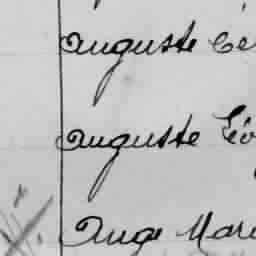 Auguste Cé
Auguste Léo
Ange Mari